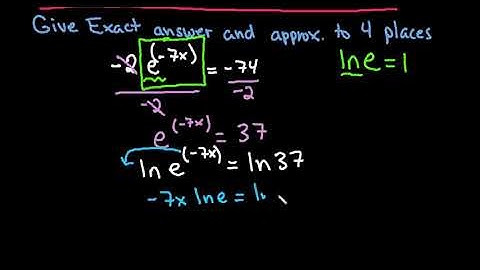 Give Exact answer and approx. to 4 places
-2 e^(-7x) / -2 = -74 / -2
ln e = 1
e^(-7x) = 37
ln e^(-7x) = ln 37
-7x ln e = l